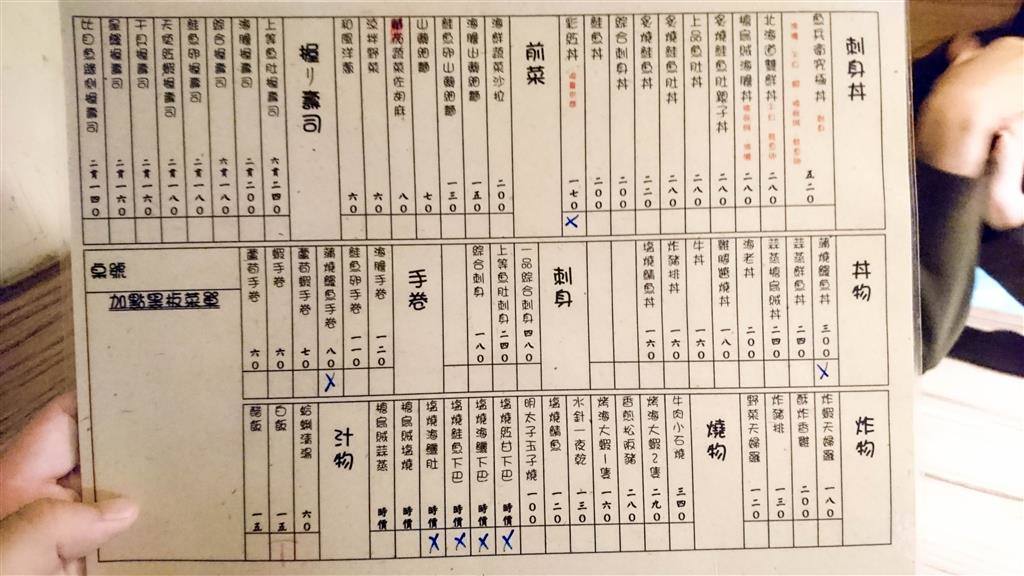 刺身丼
魚兵衛究極丼 五二0
北海道雙鮮丼 二八0
槍烏賊海膽丼 二八0
炙燒鮭魚肚親子丼 二八0
上品魚肚丼 二八0
炙燒鮭魚肚丼 二八0
炙燒鮭魚丼 二二0
綜合刺身丼 二00
鮭魚丼 二00
彩飪丼 一七0
前菜
海鮮蔬菜沙拉 二00
海膽山藥細麵 一五0
鮭魚卵山藥細麵 一三0
山藥細麵 七0
蔬菜佐胡麻 八0
涼拌野菜 六0
和風洋蔥 六0
握り壽司
上等魚肚握壽司 六貫二四0
海膽握壽司 二貫二00
綜合握壽司 六貫一八0
鮭魚卵握壽司 二貫一八0
天使紅蝦握壽司 二貫一八0
干貝握壽司 二貫一六0
星鰻握壽司 二貫一六0
比目魚鰭側握壽司 二貫一四0
丼物
蒲燒鰻魚丼 三00
蒜蒸鮮魚丼 二四0
蒜蒸槍烏賊丼 二四0
海老丼 二00
雞腿醬燒丼 一八0
牛丼 一六0
炸豬排丼 一六0
塩燒鯖魚丼 一六0
刺身
一品綜合刺身 四八0
上等魚肚刺身 二四0
綜合刺身 一八0
手卷
海膽手卷 一二0
鮭魚卵手卷 一一0
蒲燒鰻魚手卷 八0
蘆筍蝦手卷 七0
蝦手卷 六0
蘆筍手卷 六0
桌號
加點黑板菜單
炸物
炸蝦天婦羅 一八0
酥炸香雞 二00
炸豬排 一三0
野菜天婦羅 一二0
燒物
牛肉小石燒 三四0
烤海大蝦2隻 二九0
烤海大蝦1隻 一六0
香煎松阪豬 二八0
水針一夜乾 一三0
塩燒鯖魚 一二0
明太子玉子燒 一00
塩燒紅甘下巴 時價
塩燒海鱺下巴 時價
塩燒鮭魚下巴 時價
塩燒海鱺肚 時價
槍烏賊塩燒 時價
槍烏賊蒜蒸 時價
汁物
蛤蜊清湯 六0
白飯 一五
醋飯 一五